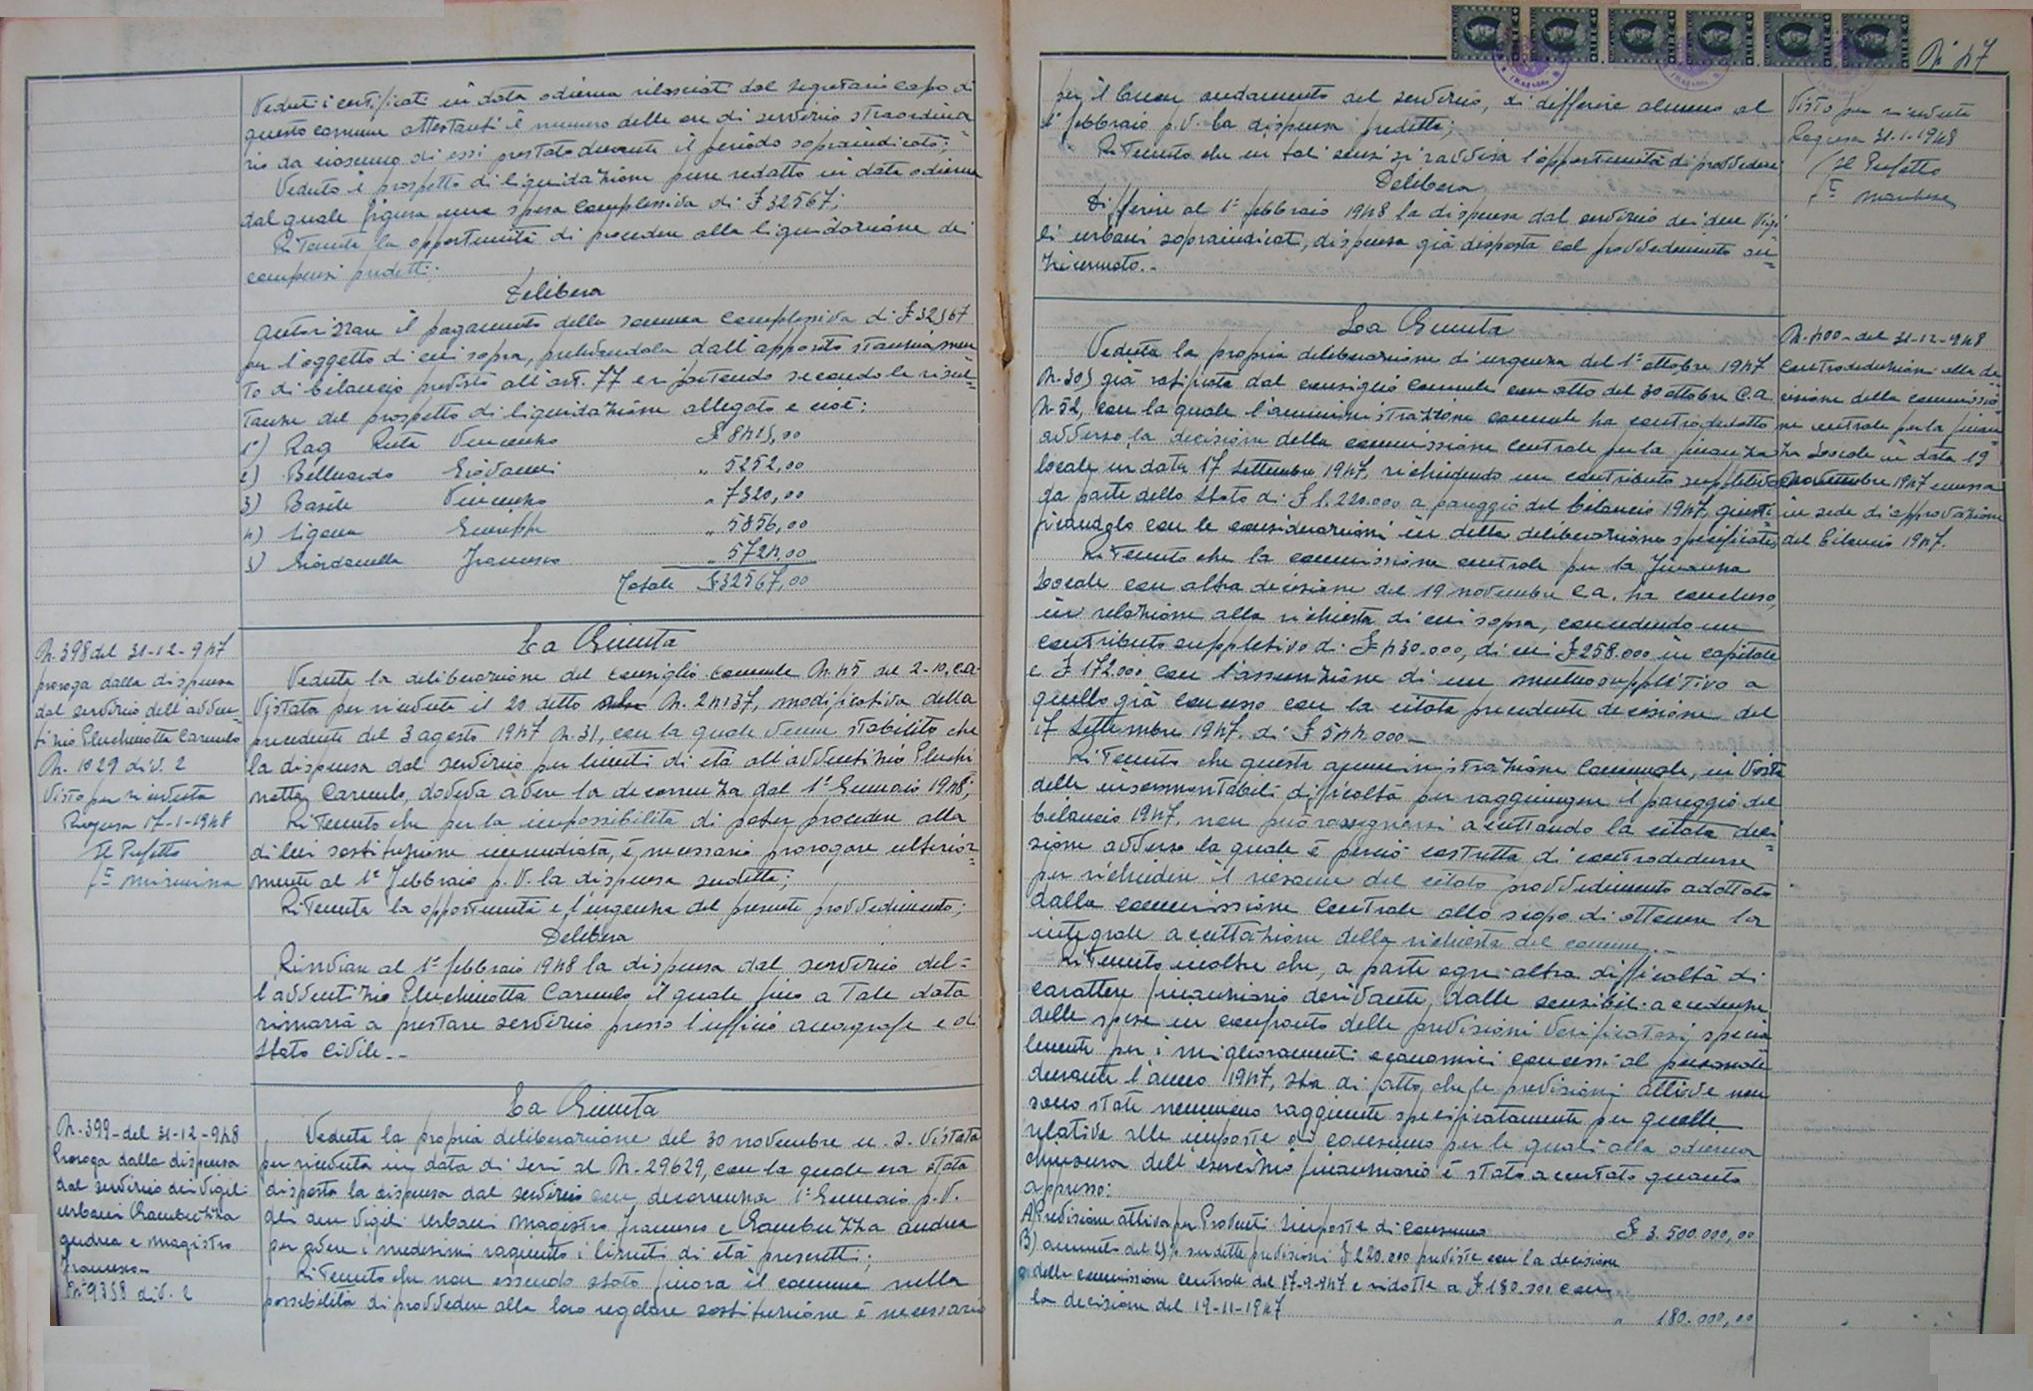 Veduti i certificati in data odierna rilasciati dal segretario capo di
questo comune attestanti il numero delle ore di servizio straordina=
rio da ciascuno di essi prestato durante il periodo sopraindicato;
Veduto il prospetto di liquidazione pure redatto in data odierna
dal quale figura una spesa complessiva di £ 32567;
Ritenuta la opportunità di procedere alla liquidazione dei
compensi predetti;
Delibera
Autorizzare il pagamento della somma complessiva di £ 32567
per l'oggetto di cui sopra, prelevandola dall'apposito stanziamen
to di bilancio previsto all'art. 77 e ripetendo secondo le risul=
tanze del prospetto di liquidazione allegato e cioè:
1°) Rag Vincenzo £ 8415,00
2) Belluardo Giovanni " 5252,00
3) Basile Vincenzo " 7320,00
4) Ligama Giuseppe " 5856,00
5) Giordanella Francesco " 5724,00
Totale £ 32567,00
N. 398 del 31-12-947
proroga dalla dispensa
dal servizio dell'avven=
tizio Pluchinotta Carmelo
N. 1029 div. 2
Visto per ricevuta
Ragusa 17-1-1948
Il Prefetto
La Giunta
Veduta la deliberazione del consiglio comunale N. 45 del 2-10. c.a.
Vistata per ricevuta il 20 detto N. 24137, modificativa della
precedente del 3 agosto 1947 N. 31, con la quale venne stabilito che
la dispensa dal servizio per limiti di età all'avventizio Pluchi
notta Carmelo, doveva avere la decorrenza dal 1° Gennaio 1948;
Ritenuto che per la impossibilità di poter procedere alla
di lui sostituzione immediata, è necessario prorogare ulterior=
mente al 1° Febbraio p.v. la dispensa suddetta;
Ritenuta la opportunità e l'urgenza del presente provvedimento;
Delibera
Rinviare al 1° febbraio 1948 la dispensa dal servizio del=
l'avventizio Pluchinotta Carmelo il quale fino a tale data
rimarrà a prestare servizio presso l'ufficio anagrafe e di
stato civile.-
N. 399 - del 31-12-948
Proroga dalla dispensa
dal servizio dei vigili
urbani Gambuzza
Andrea e Magistro
Francesco -
N° 9358 div. 2
La Giunta
Veduta la propria deliberazione del 30 novembre u. s. Vistata
per ricevuta in data di ieri al N. 29629, con la quale era stata
disposta la dispensa dal servizio con decorrenza 1° Gennaio p.v.
dei due vigili urbani Magistro Francesco e Gambuzza Andrea
per avere i medesimi raggiunto i limiti di età prescritti;
Ritenuto che non essendo stato finora il comune nella
possibilità di provvedere alla loro regolare sostituzione è necessario
N° 47
per il buon andamento del servizio, di differire almeno al
1° febbraio p.v. la dispensa predetta;
Ritenuto che in tali sensi si ravvisa l'opportunità di provvedere
Delibera
Differire al 1° febbraio 1948 la dispensa dal servizio dei due Vigi
li urbani sopraindicati, dispensa già disposta col provvedimento su=
Visto per ricevuta
Ragusa 31-1-1948
Il Prefetto
La Giunta
Veduta la propria deliberazione di urgenza del 1° ottobre 1947
N. 305 già ratificata dal consiglio comunale con atto del 30 ottobre c.a.
N 52, con la quale l'amministrazione comunale ha controdedotto
avverso la decisione della commissione centrale per la finanza
locale in data 17 settembre 1947, richiedendo un contributo suppletivo
da parte dello Stato di £ 1.220.000 a pareggio del bilancio 1947, giusti=
ficandolo con le considerazioni in detta deliberazione specificate;
Ritenuto che la commissione centrale per la Finanza
Locale con altra decisione del 19 novembre c.a. ha concluso,
in relazione alla richiesta di cui sopra, concedendo un
contributo suppletivo di £ 430.000, di cui £ 258.000 in capitale
e £ 172.000 con l'assunzione di un mutuo suppletivo a
quello già concesso con la citata precedente decisione del
17 Settembre 1947. di £ 544.000 -
Ritenuto che questa amministrazione comunale, in vista
delle insormontabili difficoltà per raggiungere il pareggio del
bilancio 1947. non può rassegnarsi accettando la citata deci
sione avverso la quale è perciò costretta di controdedurre
per richiedere il riesame del citato provvedimento adottato
dalla commissione Centrale allo scopo di ottenere la
integrale accettazione della richiesta del comune.-
Ritenuto inoltre che, a parte ogni altra difficoltà di
carattere finanziario derivante, dalle sensibili accedenze
delle spese in confronto delle previsioni verificatesi specia
lmente per i miglioramenti economici concessi al personale
durante l'anno 1947, sta di fatto che le previsioni attive non
sono state nemmeno raggiunte specificatamente per quelle
relative alle imposte di consumo per le quali alla odierna
chiusura dell'esercizio finanziario è stato accertato quanto
appresso:
A) Previsione attiva per Proventi imposte di consumo £ 3.500.000,00
B) aumento del suddette previsioni £ 220.000 previste con la decisione
della commissione centrale del 17-9-947 e ridotte a £ 180.000 con
la decisione del 19-11-1947 " 180.000,00
N. 400 - del 31-12-948
Controdeduzioni alla de
cisione della commissio
ne centrale per la finan
za Locale in data 19
novembre 1947 emessa
in sede di approvazione
del bilancio 1947.